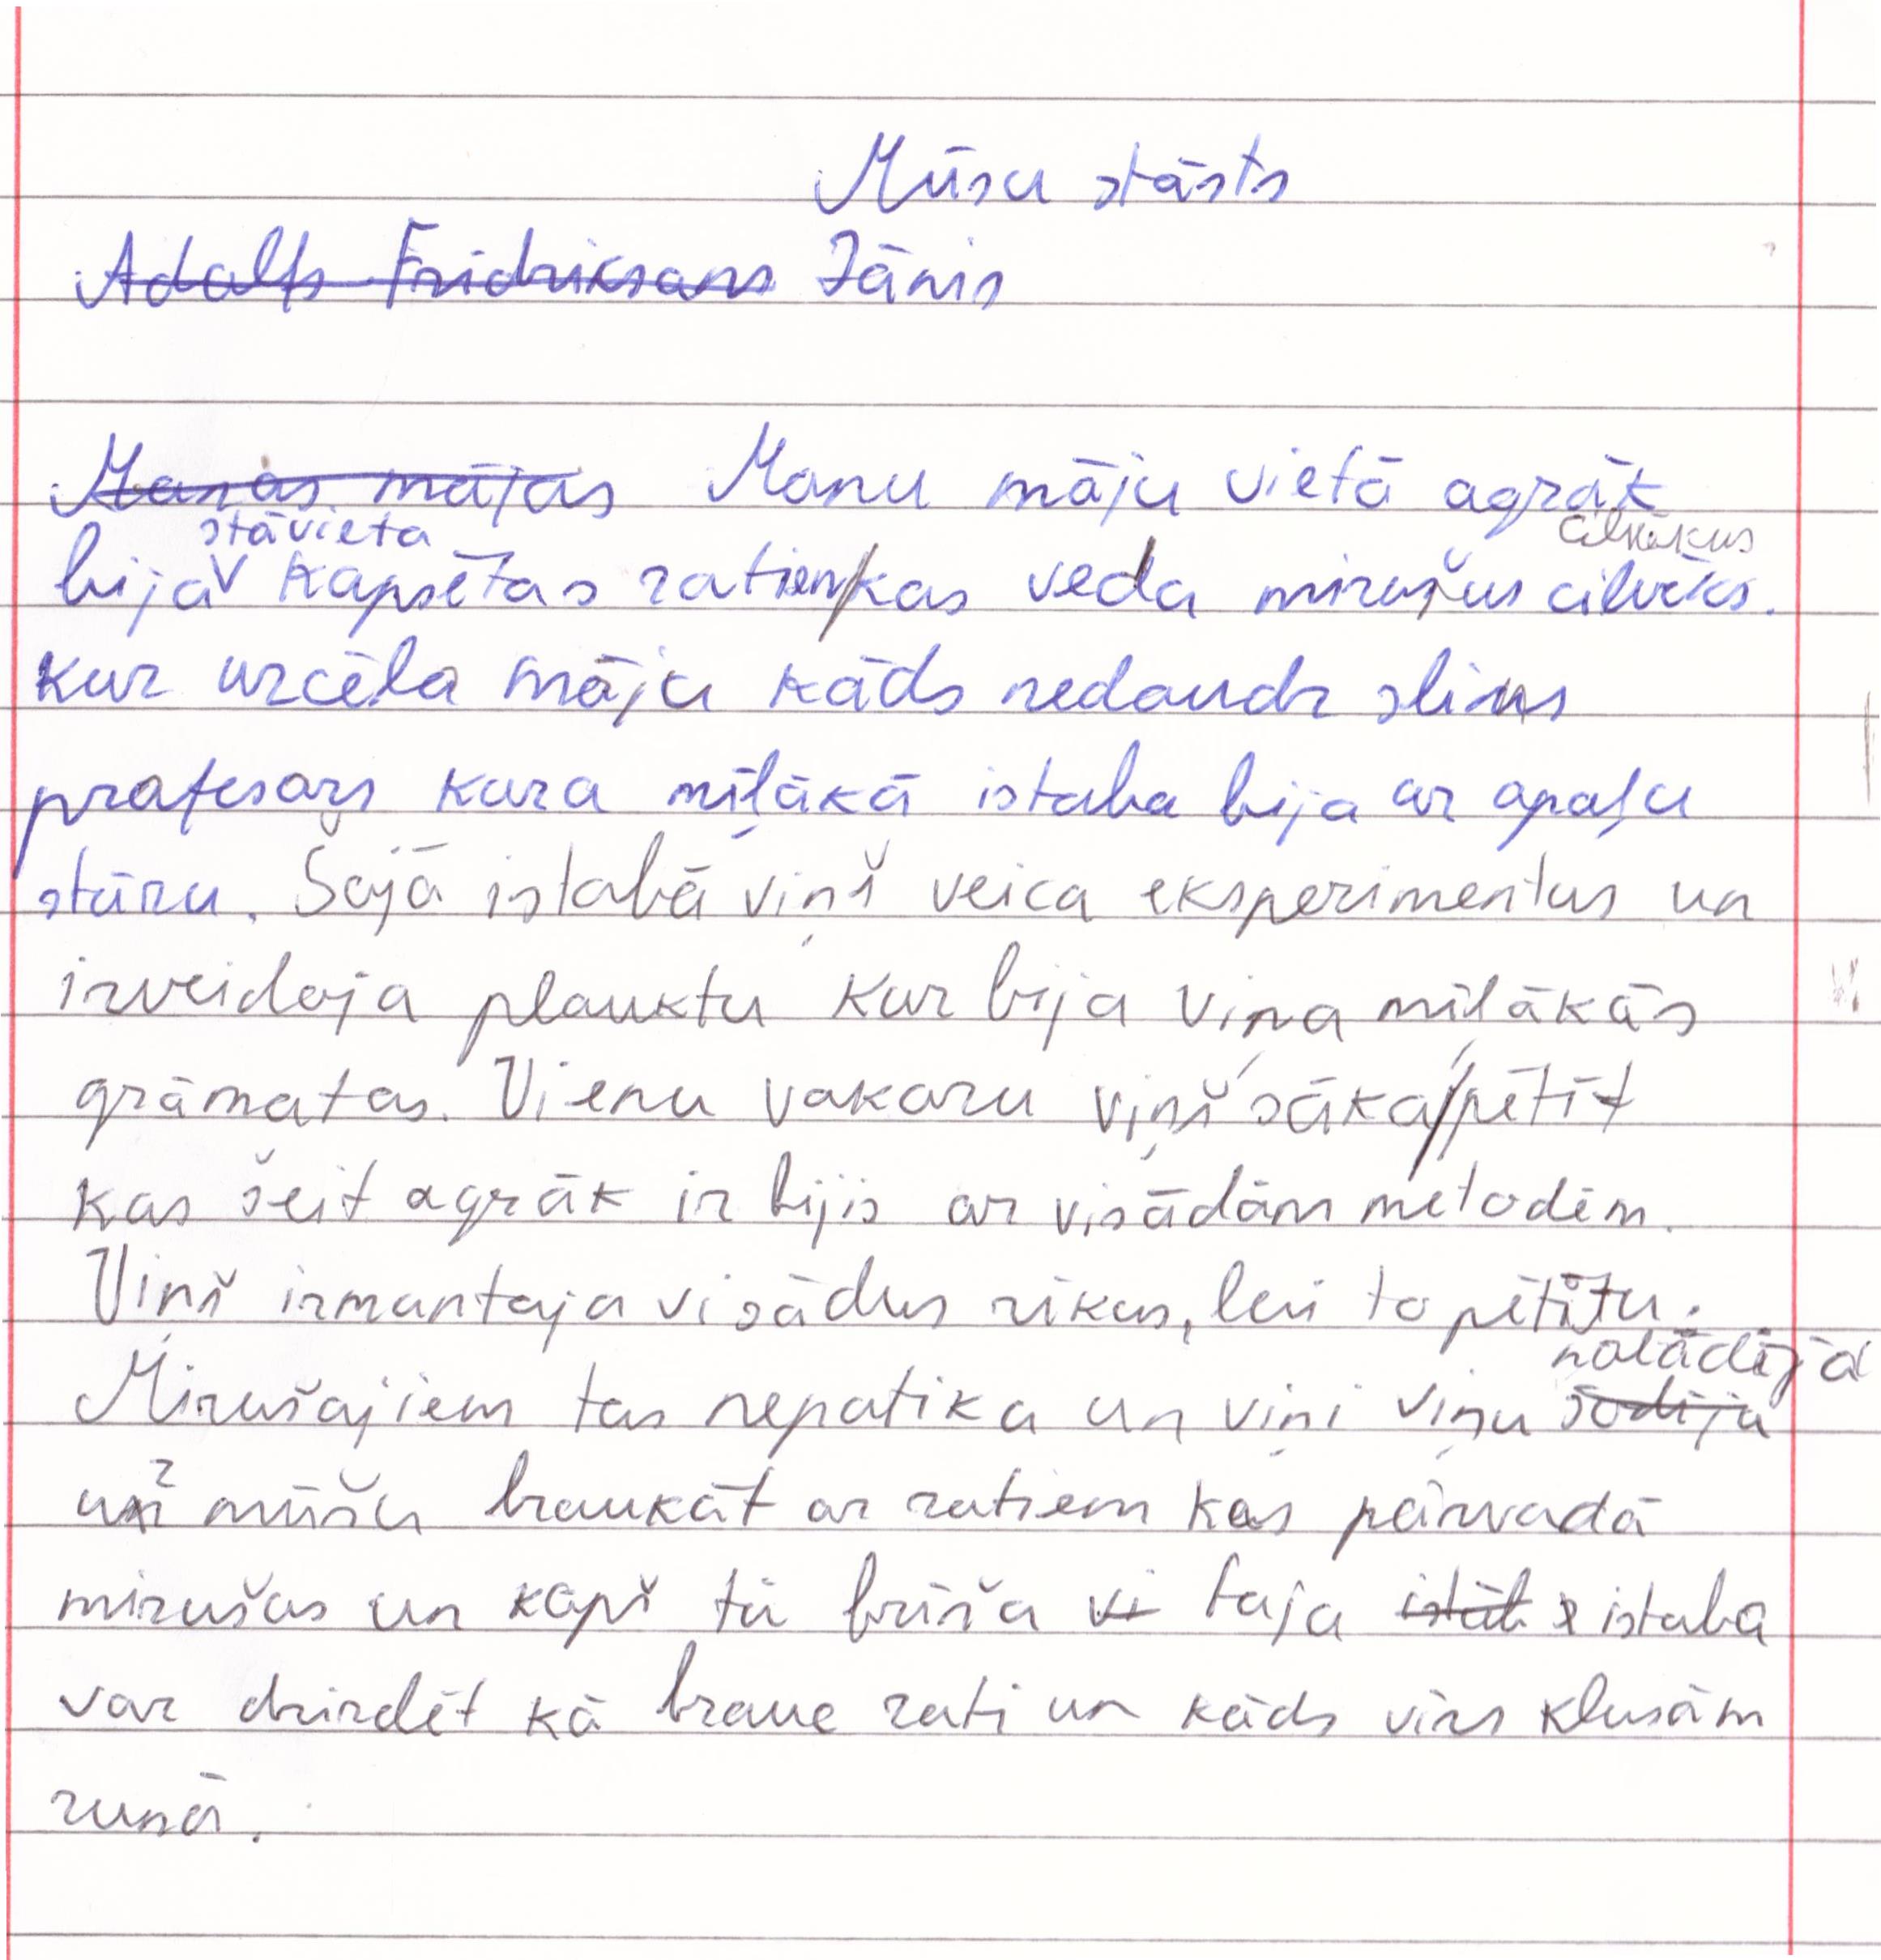 Mūsu stāsts
Adolfs Fridriksons Jānis
Manas mājas Manu māju vietā agrāk
stāvieta cilvēkus
bija v kapsētas ratiem/kas veda mirušus cilvēks.
kur uzcēla māju kāds nedaudz slims
profesors kura mīļākā istaba bija ar apaļu
stūru. Šajā istabā viņš veica eksperimentus un
izveidoja plauktu kur bija viņa mīļākās
grāmatas. Vienu vakaru viņš sāka/pētīt
kas šeit agrāk ir bijis ar visādām metodēm.
Viņš izmantoja visādus rīkus, lai to pētītu.
nolādēja
Mirušajiem tas nepatika un viņi viņu sodīja
uz mūžu braukāt ar ratiem kas pārvadā
mirušos un kopš tā brīža vi taja istāb istaba
var dzirdēt kā brauc rati un kāds vīrs klusām
runā.